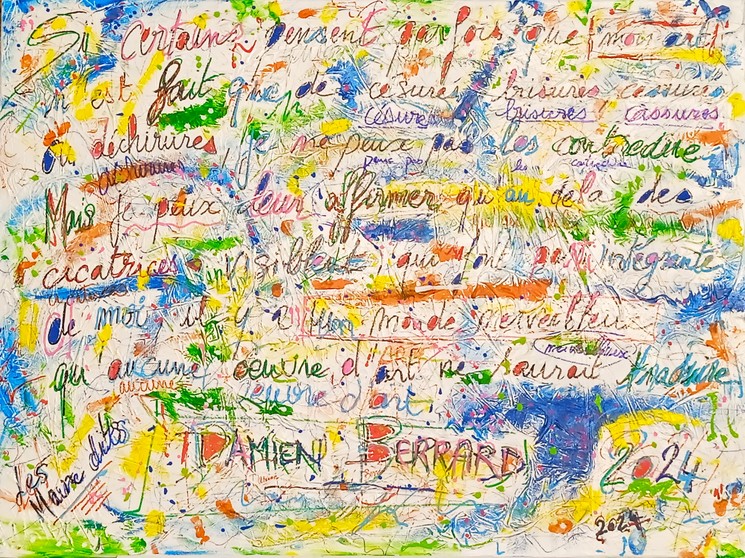 Si certains pensent parfois que mon art
n'est fait que de césures, brisures, cassures
césures brisures cassures
ou déchirures, je ne peux pas les contredire
déchirures peux pas les contredire
Mais je peux leur affirmer qu'au delà des
cicatrices invisibles qui font parti intégrante
de moi, il y a un monde merveilleux
merveilleux
qu'aucune oeuvre d'art ne saurait traduire
aucune oeuvre d'art
DAMIEN BERRARD 2024
Les Maux dits
2024